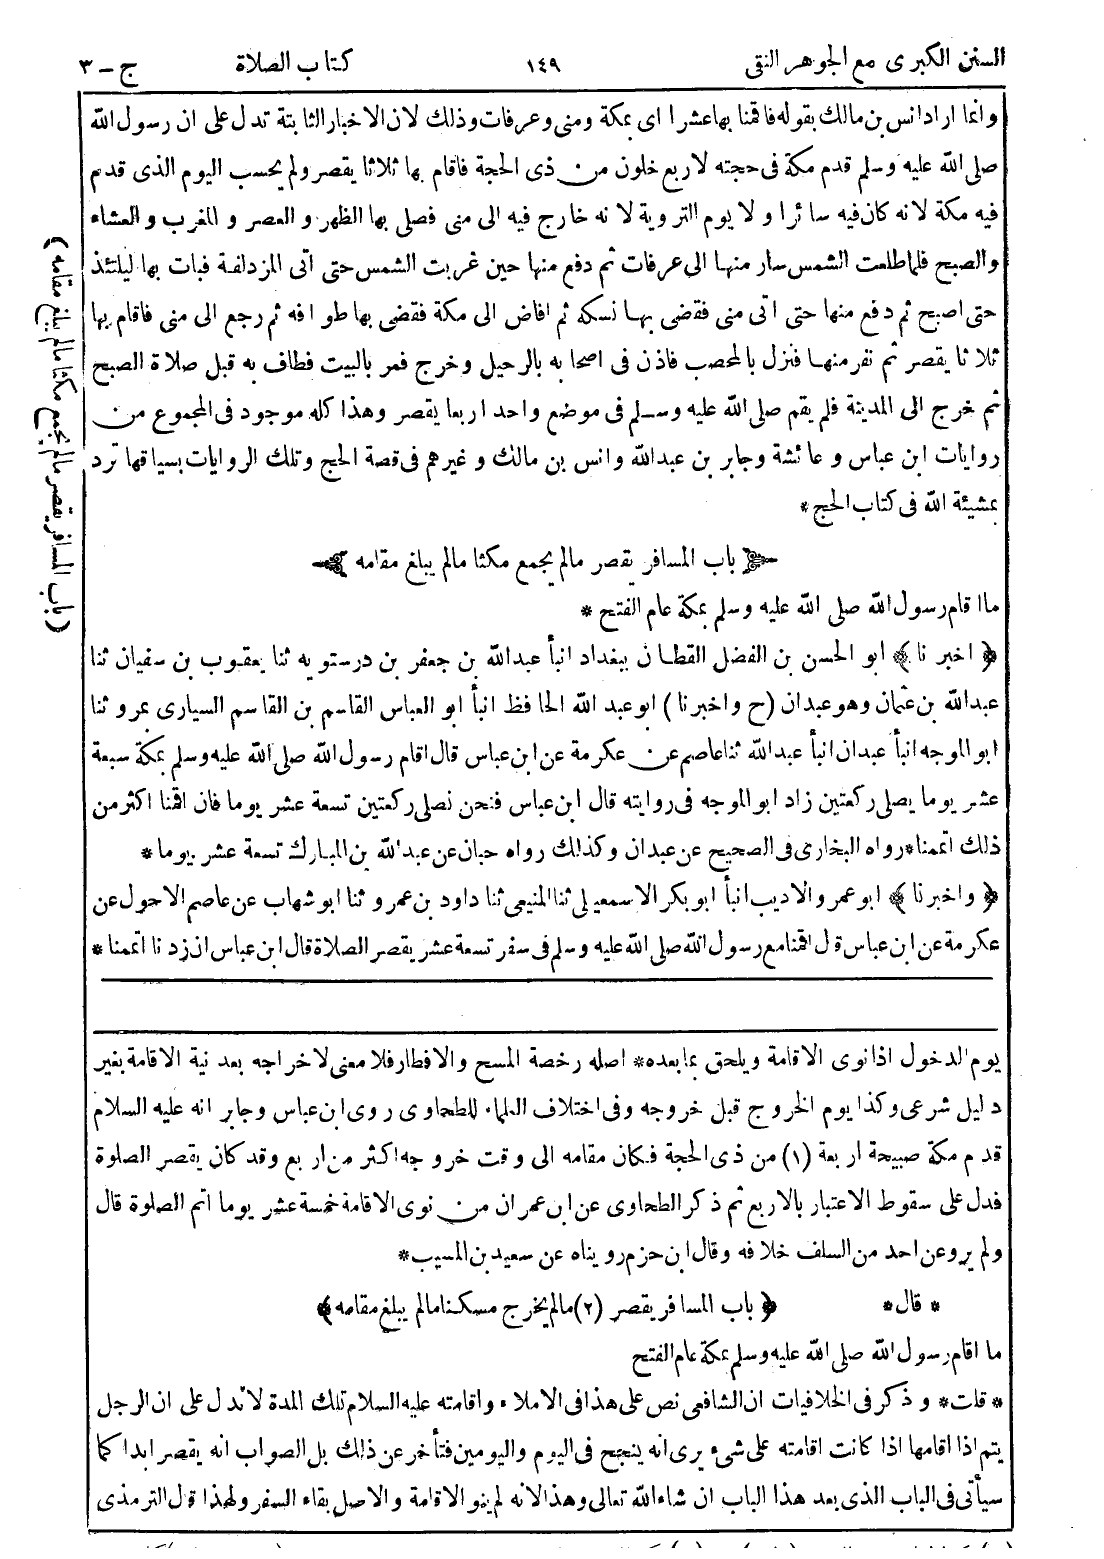 السنن الكبرى مع الجوهر النقى ١٤٩ كتاب الصلاة ج - ٣
وانما اراد انس بن مالك بقوله فاقمنا بها عشرا اى بمكة ومنى وعرفات وذلك لان الاخبار الثابتة تدل على ان رسول الله
صلى الله عليه وسلم قدم مكة فى حجته لاربع خلون من ذى الحجة فاقام بها ثلاثا يقصر ولم يحسب اليوم الذى قدم
فيه مكة لانه كان فيه سائرا ولا يوم التروية لانه خارج فيه الى منى فصلى بها الظهر و العصر و المغرب و العشاء
والصبح فلما طلعت الشمس سار منها الى عرفات ثم دفع منها حين غربت الشمس حتى اتى المزدلفة فبات بها ليلتئذ
حتى اصبح ثم دفع منها حتى اتى منى فقضى بها نسكه ثم افاض الى مكة فقضى بها طوافه ثم رجع الى منى فاقام بها
ثلاثا يقصر ثم نفر منها فنزل بالمحصب فاذن فى اصحابه بالرحيل وخرج فمر بالبيت فطاف به قبل صلاة الصبح
ثم خرج الى المدينة فلم يقم صلى الله عليه وسلم فى موضع واحد اربعا يقصر وهذا كله موجود فى المجموع من
روايات ابن عباس و عائشة وجابر بن عبدالله وانس بن مالك و غيرهم فى قصة الحج وتلك الروايات بسياقها ترد
بمشيئة الله فى كتاب الحج *
باب المسافر يقصر مالم يجمع مكثا مالم يبلغ مقامه
ما اقام رسول الله صلى الله عليه وسلم بمكة عام الفتح *
﴿ اخبرنا ﴾ ابو الحسن بن الفضل القطان ببغداد انبأ عبدالله بن جعفر بن درستويه ثنا يعقوب بن سفيان ثنا
عبدالله بن عثمان وهو عبدان (ح واخبرنا) ابو عبد الله الحافظ انبأ ابو العباس القاسم بن القاسم السيارى بمرو ثنا
ابو الموجه انبأ عبدان انبأ عبدالله ثنا عاصم عن عكرمة عن ابن عباس قال اقام رسول الله صلى الله عليه وسلم بمكة سبعة
عشر يوما يصلى ركعتين زاد ابو الموجه فى روايته قال ابن عباس فنحن نصلى ركعتين تسعة عشر يوما فان اقمنا اكثر من
ذلك اتممنا * رواه البخارى فى الصحيح عن عبدان وكذلك رواه حبان عن عبدالله بن المبارك تسعة عشر يوما *
﴿ واخبرنا ﴾ ابو عمرو الاديب انبأ ابو بكر الاسمعيلى ثنا المنيعى ثنا داود بن عمرو ثنا ابو شهاب عن عاصم الاحول عن
عكرمة عن ابن عباس قال اقمنا مع رسول الله صلى الله عليه وسلم فى سفر تسعة عشر يقصر الصلاة قال ابن عباس ان زدنا اتممنا *
(باب المسافر يقصر مالم يجمع مكثا مالم يبلغ مقامه)
يوم الدخول اذا نوى الاقامة ويلحق بما بعده * اصله رخصة المسح والافطار فلا معنى لاخراجه بعد نية الاقامة بغير
دليل شرعى وكذا يوم الخروج قبل خروجه وفى اختلاف العلماء للطحاوى روى ابن عباس وجابر انه عليه السلام
قدم مكة صبيحة اربعة (١) من ذى الحجة فكان مقامه الى وقت خروجه اكثر من اربع وقد كان يقصر الصلوة
فدل على سقوط الاعتبار بالاربع ثم ذكر الطحاوى عن ابن عمر ان من نوى الاقامة خمسة عشر يوما اتم الصلوة قال
ولم يرو عن احد من السلف خلافه وقال ابن حزم رويناه عن سعيد بن المسيب *
* قال * ﴿ باب المسافر يقصر (٢) مالم يخرج مسكنا مالم يبلغ مقامه ﴾
ما اقام رسول الله صلى الله عليه وسلم بمكة عام الفتح
* قلت * و ذكر فى الخلافيات ان الشافعى نص على هذا فى الاملاء و اقامته عليه السلام تلك المدة لا تدل على ان الرجل
يتم اذا اقامها اذا كانت اقامته على شىء يرى انه ينجح فى اليوم واليومين فتأخر عن ذلك بل الصواب انه يقصر ابدا كما
سيأتى فى الباب الذى بعد هذا الباب ان شاء الله تعالى وهذا لانه لم ينو الاقامة والاصل بقاء السفر ولهذا قول الترمذى